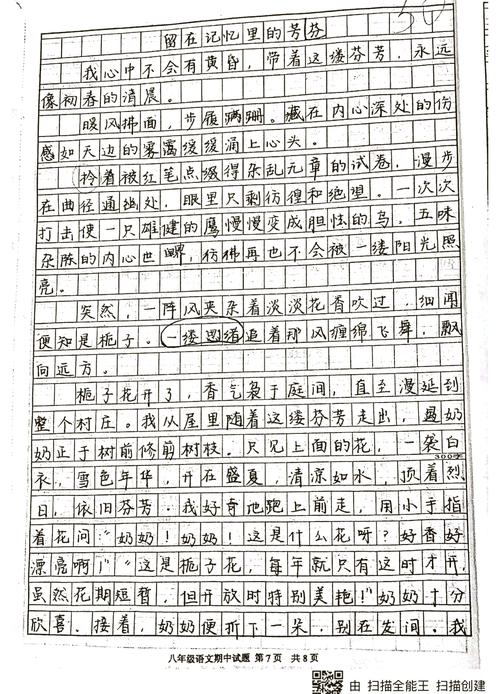 50
留在记忆里的芳芬
我心中不会有黄昏，带着这缕芬芳，永远
像初春的清晨。
暖风拂面，步履蹒跚。藏在内心深处的伤
感如天边的雾霭缓缓涌上心头。
拎着被红笔点缀得杂乱无章的试卷，漫步
在曲径通幽处，眼里只剩彷徨和绝望。一次次
打击使一只雄健的鹰慢慢变成胆怯的鸟，五味
杂陈的内心世界，仿佛再也不会被一缕阳光照
亮。
突然，一阵风夹杂着淡淡花香吹过，细闻
便知是栀子。一缕思绪追着那风缠绵飞舞，飘
向远方。
栀子花开了，香气袅于庭间，直至漫延到
整个村庄。我从屋里随着这缕芬芳走出，遇奶
奶正于树前修剪树枝。只见上面的花，一袭白
300字
衣，雪色年华，开在盛夏，清凉如水，顶着烈
日，依旧芬芳。我好奇地跑上前走，用小手指
着花问：“奶奶！奶奶！这是什么花呀？好香好
漂亮啊！”“这是栀子花，每年就只有这时才开，
虽然花期短暂，但开放时特别美艳！”奶奶十分
欣喜。接着，奶奶便折下一朵，别在发间。我
八年级语文期中试题 第7页 共8页
由 扫描全能王 扫描创建